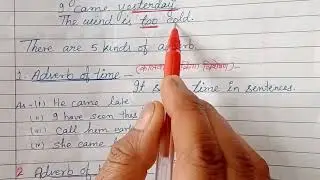 I came yesterday.
The wind is too cold.
There are 5 kinds of adverb.
1. Adverb of time - (
It s time in sentences.
As - (i) He came late
(ii) I have seen this
(iii) Call him
(iv) she came
2 Adverb of